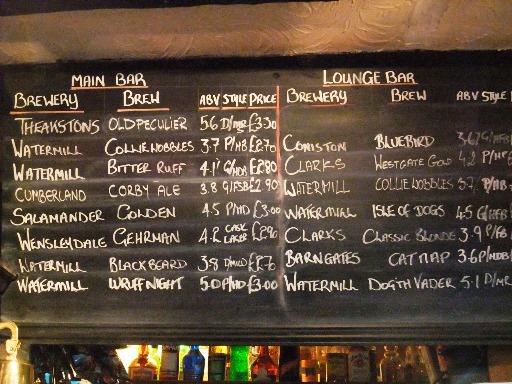 MAIN BAR
BREWERY BREW ABV STYLE PRICE
THEAKSTONS OLD PECULIER 5.6 D/MR £3.30
WATERMILL COLLIE WOBBLES 3.7 P/HB £2.70
WATERMILL BITTER RUFF 4.1 £2.80
CUMBERLAND CORBY ALE 3.8 £2.90
SALAMANDER GOLDEN 4.5 P/HD £3.00
WENSLEYDALE GEHRMAN 4.2 CASK LAGER £2.90
WATERMILL BLACKBEARD 3.8 £2.70
WATERMILL WRUFF NIGHT 5.0 P/HD £3.00
LOUNGE BAR
BREWERY BREW ABV STYLE
CONISTON BLUEBIRD 3.6
CLARKS WESTGATE GOLD 4.2 P/HB
WATERMILL COLLIE WOBBLES 3.7 P/HB
WATERMILL ISLE OF DOGS 4.5 G/HFB
CLARKS CLASSIC BLONDE 3.9 P/FB
BARNGATES CAT NAP 3.6 P/HDB
WATERMILL DOGTH VADER 5.1 D/MR